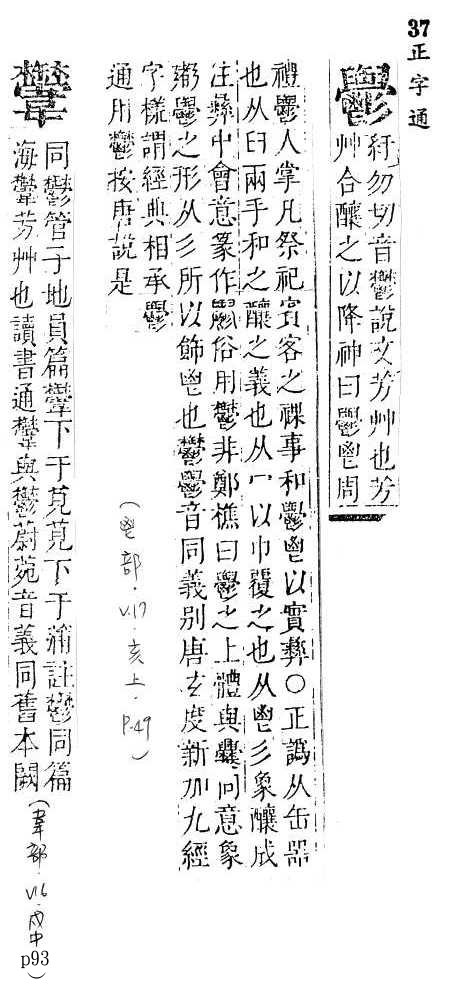 37 正字通
𩰪
紆勿切音鬱說文芳艸也芳
艸合釀之以降神曰𩰪鬯周
禮𩰪人掌凡祭祀賓客之祼事和𩰪鬯以實彝○正譌从缶器
也从臼兩手和之釀之義也从冖以巾覆之也从鬯彡象釀成
注彝中會意篆作俗用鬱非鄭樵曰𩰪之上體與爨同意象
粥𩰪之形从彡所以飾鬯也鬱𩰪音同義别唐玄度新加九經
字樣謂經典相承𩰪
通用鬱按唐說是
(鬯部.V.17.亥上.P.49)
同鬱管子地員篇下于莧莧下于蒲註鬱同篇
海芳艸也讀書通與鬱蔚菀音義同舊本闕
(韋部.V.16.戌中 p93)